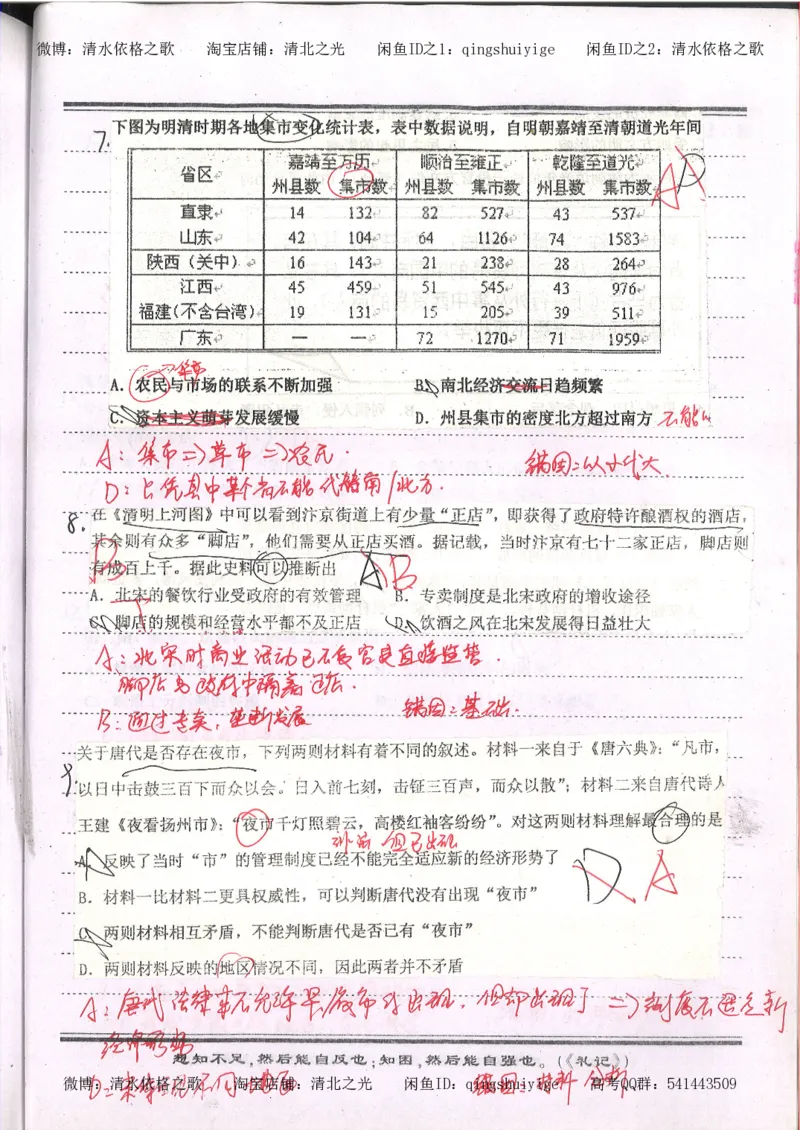 微博：清水依格之歌 淘宝店铺：清北之光 闲鱼ID之1：qingshuiyige 闲鱼ID之2：清水依格之歌
7. 下图为明清时期各地集市变化统计表，表中数据说明，自明朝嘉靖至清朝道光年间
省区 嘉靖至万历 顺治至雍正 乾隆至道光
州县数 集市数 州县数 集市数 州县数 集市数
直隶 14 132 82 527 43 537
山东 42 104 64 1126 74 1583
陕西（关中） 16 143 21 238 28 264
江西 45 459 51 545 43 976
福建(不含台湾) 19 131 15 205 39 511
广东 — — 72 1270 71 1959
D A
A. 农民与市场的联系不断加强 B. 南北经济交流日趋频繁
C. 资本主义萌芽发展缓慢 D. 州县集市的密度北方超过南方
A：集市=>草市=>农民.
错因：以小代大
D：
8. 在《清明上河图》中可以看到汴京街道上有少量“正店”，即获得了政府特许酿酒权的酒店，
其余则有众多“脚店”，他们需要从正店买酒。据记载，当时汴京有七十二家正店，脚店则
有成百上千。据此史料可以推断出 A B
A. 北宋的餐饮行业受政府的有效管理 B. 专卖制度是北宋政府的增收途径
C. 脚店的规模和经营水平都不及正店 D. 饮酒之风在北宋发展得日益壮大
A：北宋时商业活动已不受官吏直接监督.
B：通过专卖，垄断发展
错因：基础.
9. 关于唐代是否存在夜市，下列两则材料有着不同的叙述。材料一来自于《唐六典》：“凡市，
以日中击鼓三百下而众以会。日入前七刻，击钲三百声，而众以散”；材料二来自唐代诗人
王建《夜看扬州市》：“夜市千灯照碧云，高楼红袖客纷纷”。对这两则材料理解最合理的是
A. 反映了当时“市”的管理制度已经不能完全适应新的经济形势了
D A
B. 材料一比材料二更具权威性，可以判断唐代没有出现“夜市”
C. 两则材料相互矛盾，不能判断唐代是否已有“夜市”
D. 两则材料反映的地区情况不同，因此两者并不矛盾
A：唐代法律 出现，但却出现了=>制度不适应新
经济形势
知不足,然后能自反也;知困,然后能自强也。(《礼记》)
微博：清水依格之歌 淘宝店铺：清北之光 闲鱼ID：qingshuiyige 高考QQ群：541443509